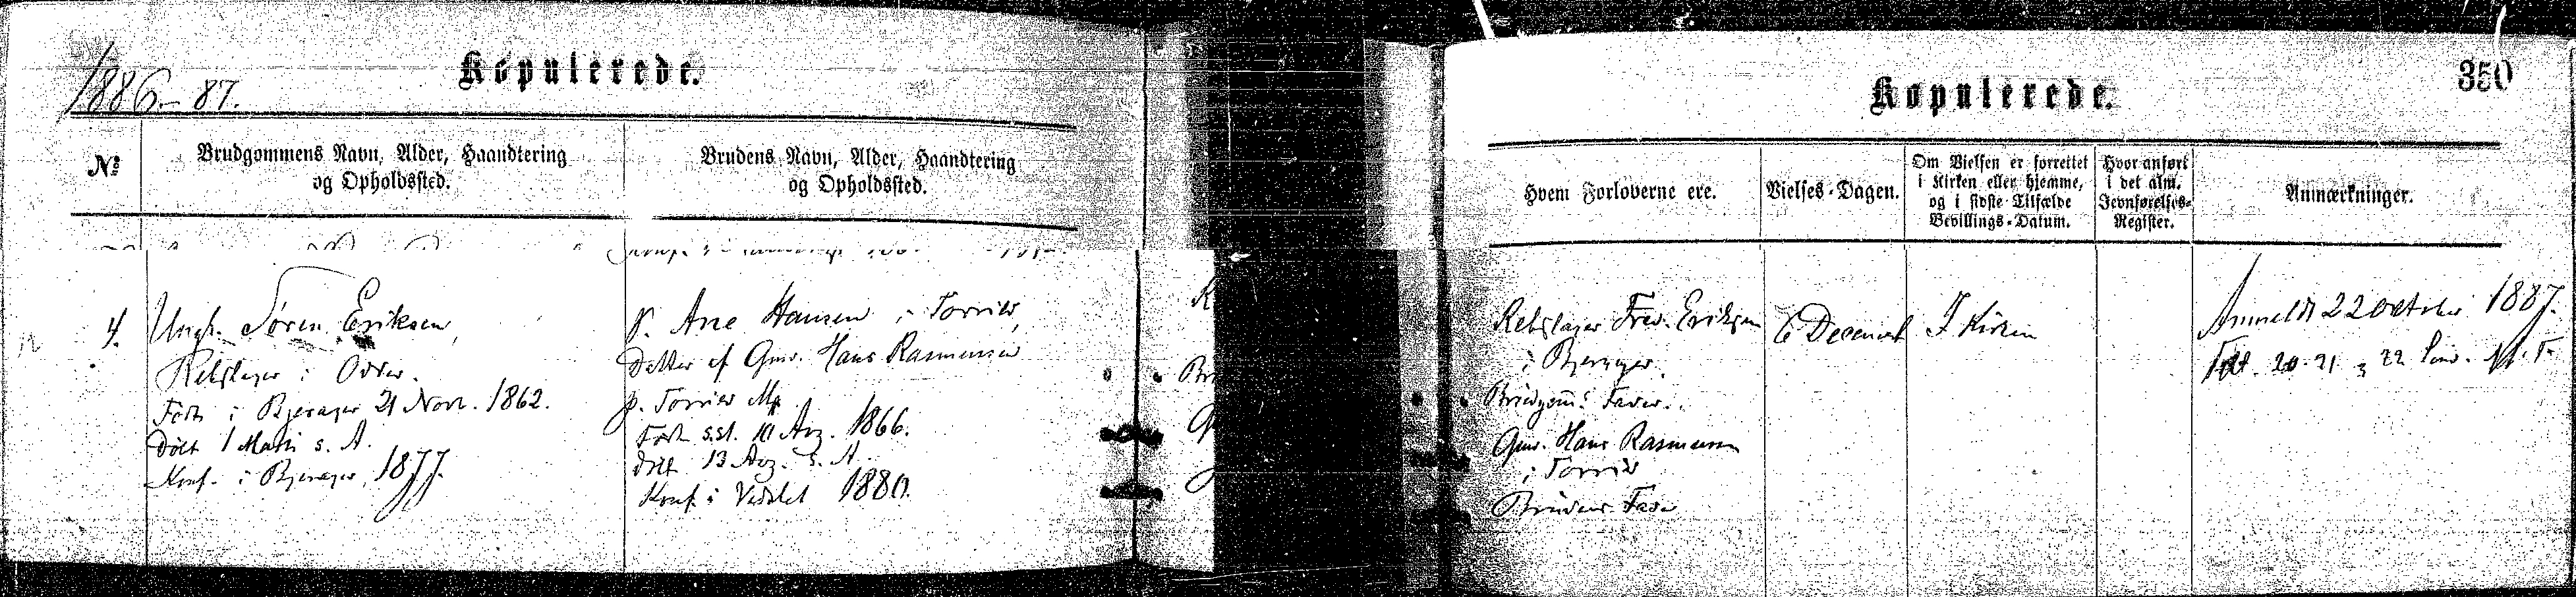 1886-87.
Kopulerede.
Kopulerede.
350
№
Brudgommens Navn, Alder, Haandtering
og Opholdssted.
Brudens Navn, Alder, Haandtering
og Opholdssted.
Hvem Forloverne ere.
Vielses-Dagen.
Om Vielsen er forrettet
i Kirken eller hjemme,
og i sidste Tilfælde
Bevillings-Datum.
Hvor anført
i det alm.
Jevnførelses-
Register.
Anmærkninger.
4.
Ungk. Søren Eriksen,
Rebslager i Odder.
Født i Bjerager 21 Novr. 1862.
Døbt 1 Marts s. A.
Konf. i Bjerager 1877.
P. Ane Hansen i Torrild,
Datter af Gmd. Hans Rasmussen
p. Torrild Mk
Født s.st. 10 Aug. 1866.
døbt 13 Aug. s. A.
Konf. i Vedslet 1880.
Rebslager Fred. Eriksen
i Bjerager.
Brudgoms Fader.
Gmd. Hans Rasmussen
i Torrild
Brudens Fader
6 Decemb
I Kirken
Anmeldt 22 October 1887.
20. 21 22